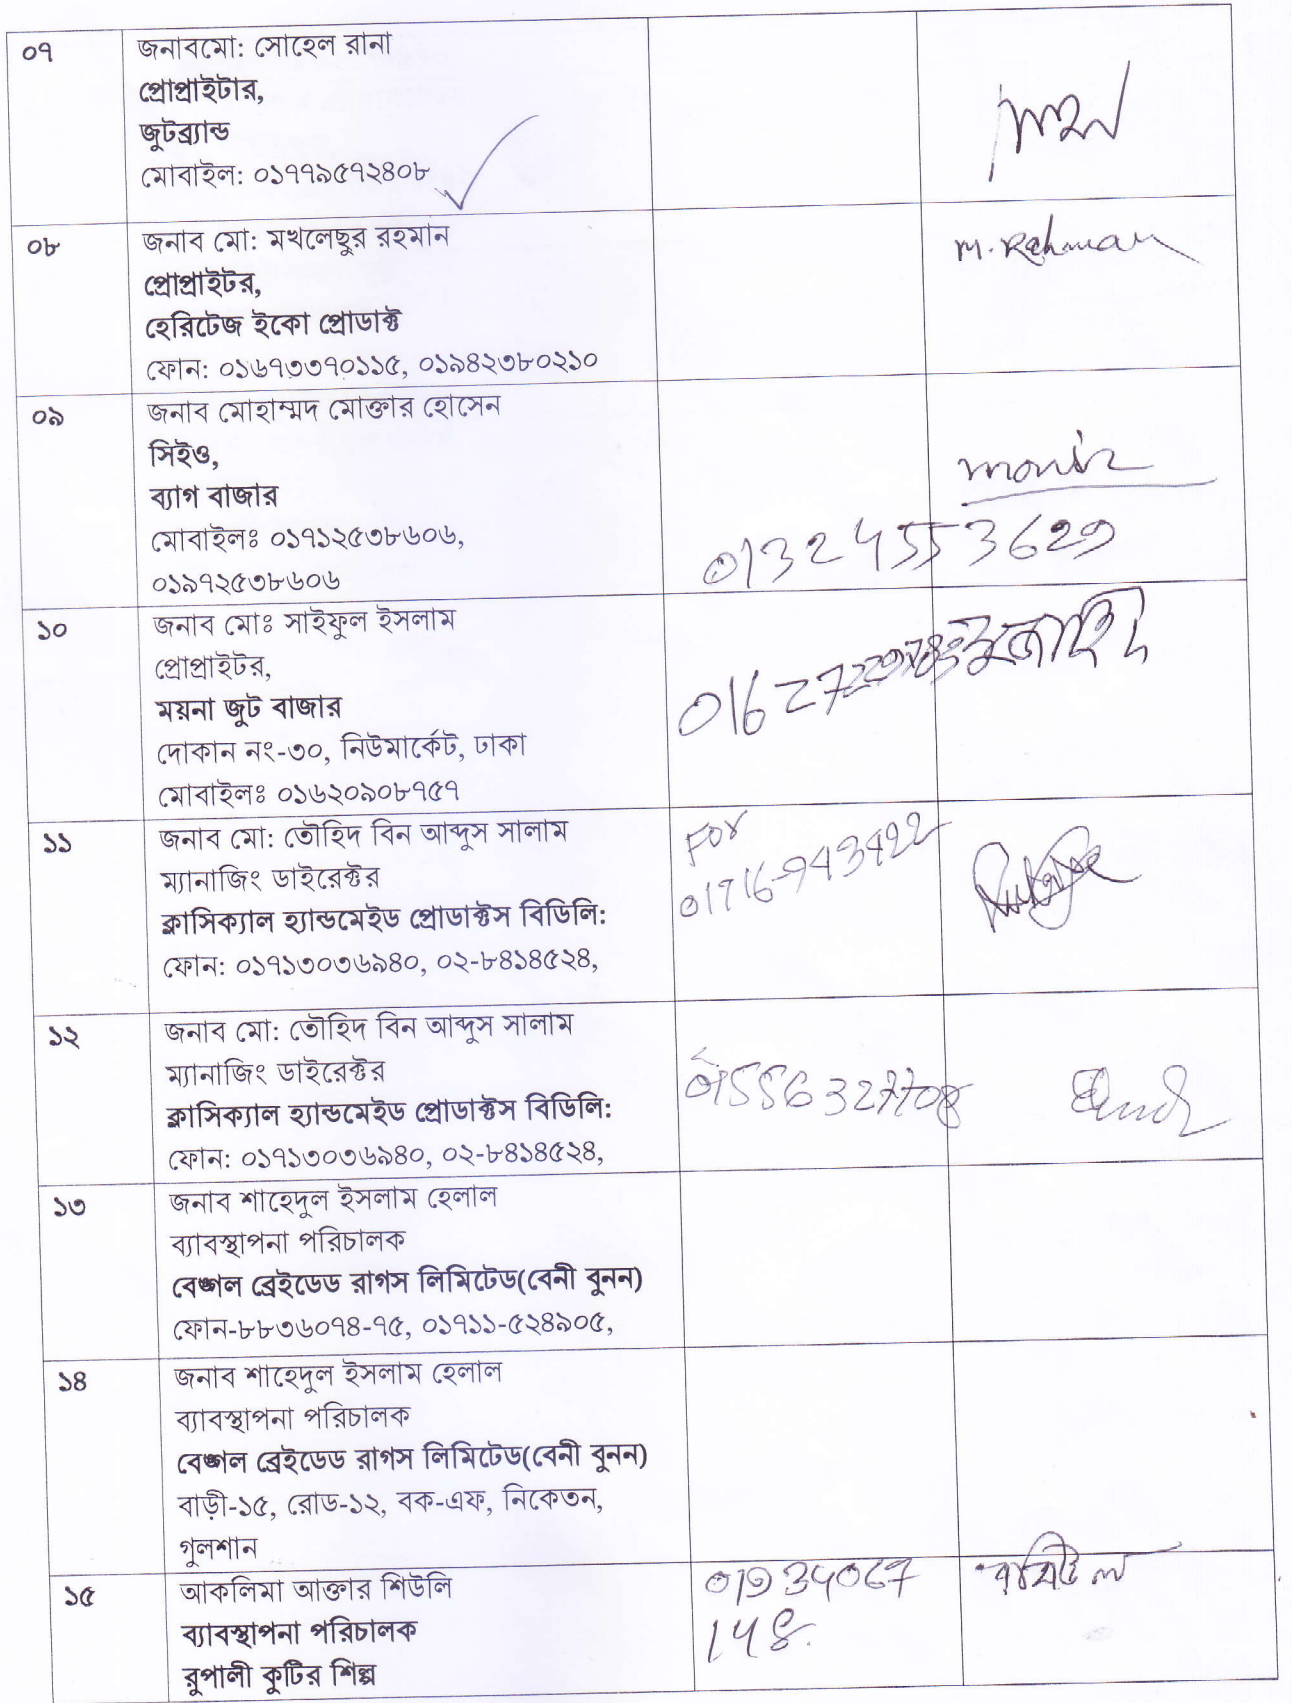 ০৭
জনাবমো: সোহেল রানা
প্রোপ্রাইটার,
জুটব্র্যান্ড
মোবাইল: ০১৭৭৯৫৭২৪০৮
০৮
জনাব মো: মখলেছুর রহমান
M. Rahman
প্রোপ্রাইটর,
হেরিটেজ ইকো প্রোডাক্ট
ফোন: ০১৬৭৩৩৭০১১৫, ০১৯৪২৩৮০২১০
০৯
জনাব মোহাম্মদ মোক্তার হোসেন
সিইও,
ব্যাগ বাজার
মোবাইলঃ ০১৭১২৫৩৮৬০৬,
০১৯৭২৫৩৮৬০৬
01324553629
১০
জনাব মোঃ সাইফুল ইসলাম
প্রোপ্রাইটর,
ময়না জুট বাজার
দোকান নং-৩০, নিউমার্কেট, ঢাকা
মোবাইলঃ ০১৬২০৯০৮৭৫৭
১১
জনাব মো: তৌহিদ বিন আব্দুস সালাম
ম্যানাজিং ডাইরেক্টর
ক্লাসিক্যাল হ্যান্ডমেইড প্রোডাক্টস বিডিলি:
ফোন: ০১৭১৩০৩৬৯৪০, ০২-৮৪১৪৫২৪,
For
01716-943422
১২
জনাব মো: তৌহিদ বিন আব্দুস সালাম
ম্যানাজিং ডাইরেক্টর
ক্লাসিক্যাল হ্যান্ডমেইড প্রোডাক্টস বিডিলি:
ফোন: ০১৭১৩০৩৬৯৪০, ০২-৮৪১৪৫২৪,
01556327708
১৩
জনাব শাহেদুল ইসলাম হেলাল
ব্যাবস্থাপনা পরিচালক
বেঙ্গল ব্রেইডেড রাগস লিমিটেড(বেনী বুনন)
ফোন-৮৮৩৬০৭৪-৭৫, ০১৭১১-৫২৪৯০৫,
১৪
জনাব শাহেদুল ইসলাম হেলাল
ব্যাবস্থাপনা পরিচালক
বেঙ্গল ব্রেইডেড রাগস লিমিটেড(বেনী বুনন)
বাড়ী-১৫, রোড-১২, বক-এফ, নিকেতন,
গুলশান
১৫
আকলিমা আক্তার শিউলি
ব্যাবস্থাপনা পরিচালক
রুপালী কুটির শিল্প